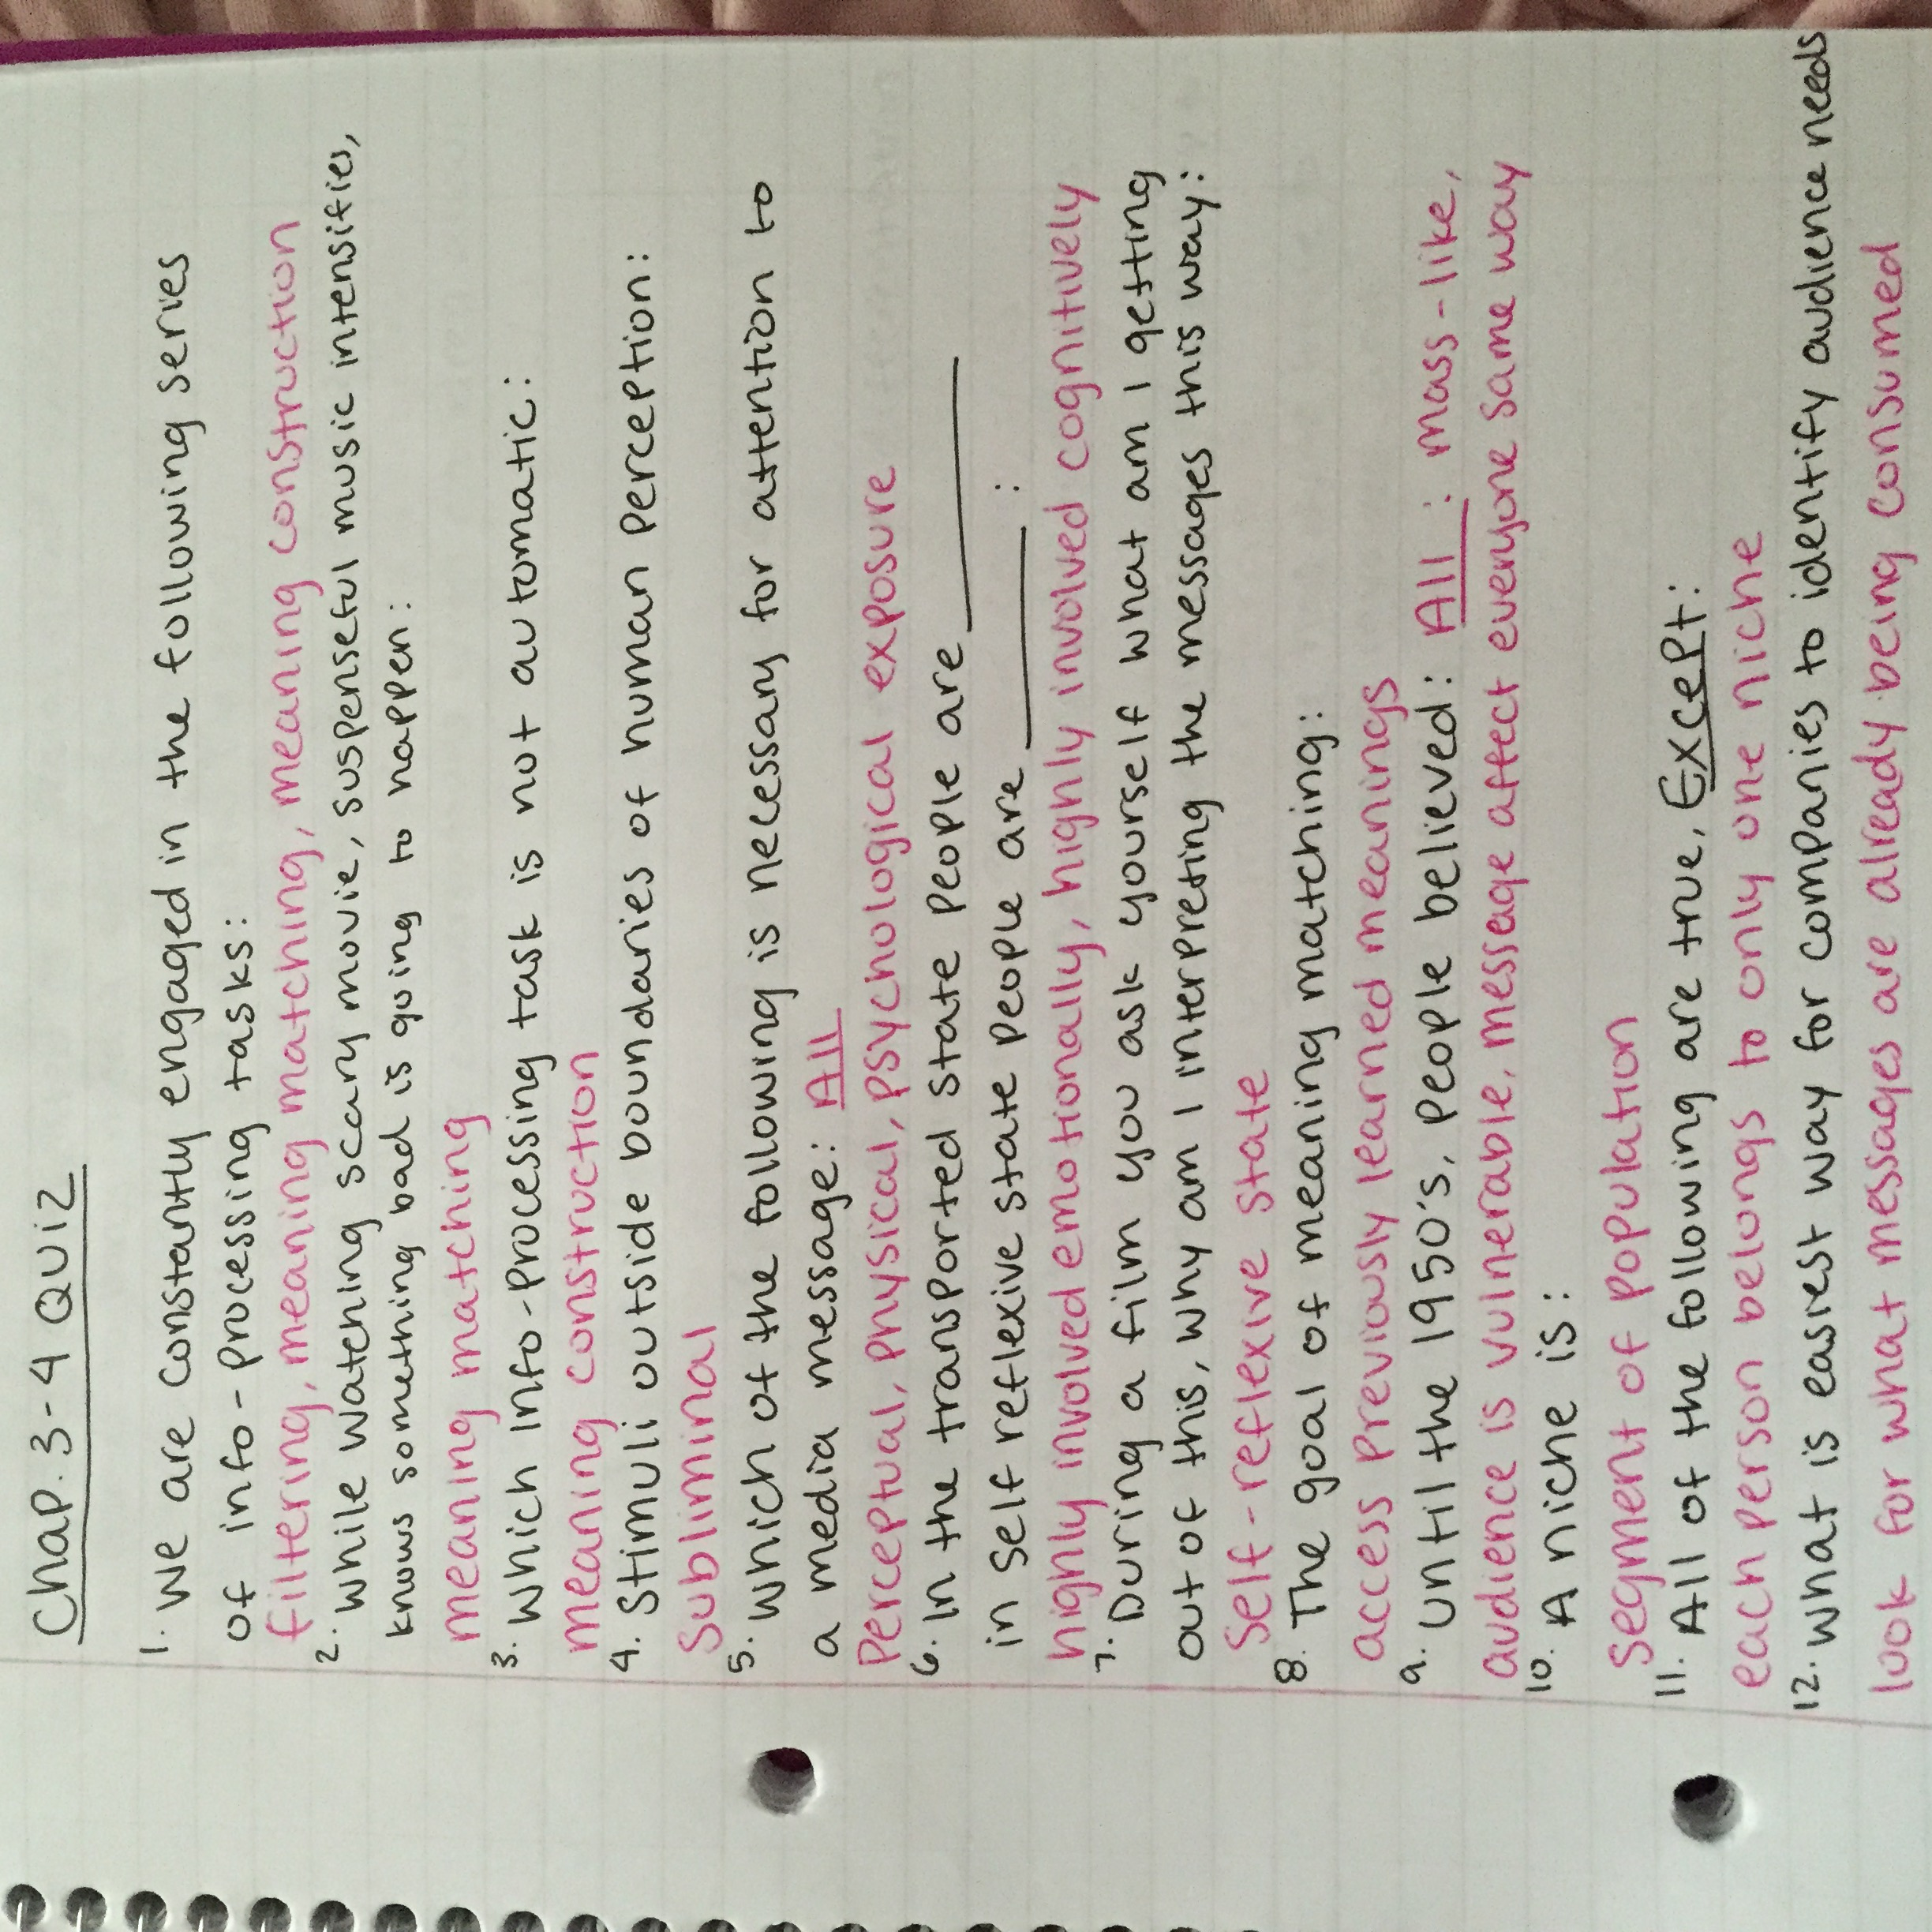 Chap. 3-4 Quiz
1. We are constantly engaged in the following series
of info-processing tasks:
filtering, meaning matching, meaning construction
2. While watching scary movie, suspenseful music intensifies,
knows something bad is going to happen:
meaning matching
3. Which info-processing task is not automatic:
meaning construction
4. Stimuli outside boundaries of human perception:
Subliminal
5. Which of the following is necessary for attention to
a media message: All
Perceptual, physical, psychological exposure
6. In the transported state people are ________
in self reflexive state people are ________:
highly involved emotionally, highly involved cognitively
7. During a film you ask yourself what am I getting
out of this, why am I interpreting the messages this way:
Self-reflexive state
8. The goal of meaning matching:
access previously learned meanings
9. Until the 1950's, people believed: All: mass-like,
audience is vulnerable, message affect everyone same way
10. A niche is:
segment of population
11. All of the following are true, Except:
each person belongs to only one niche
12. What is easiest way for companies to identify audience needs
look for what messages are already being consumed